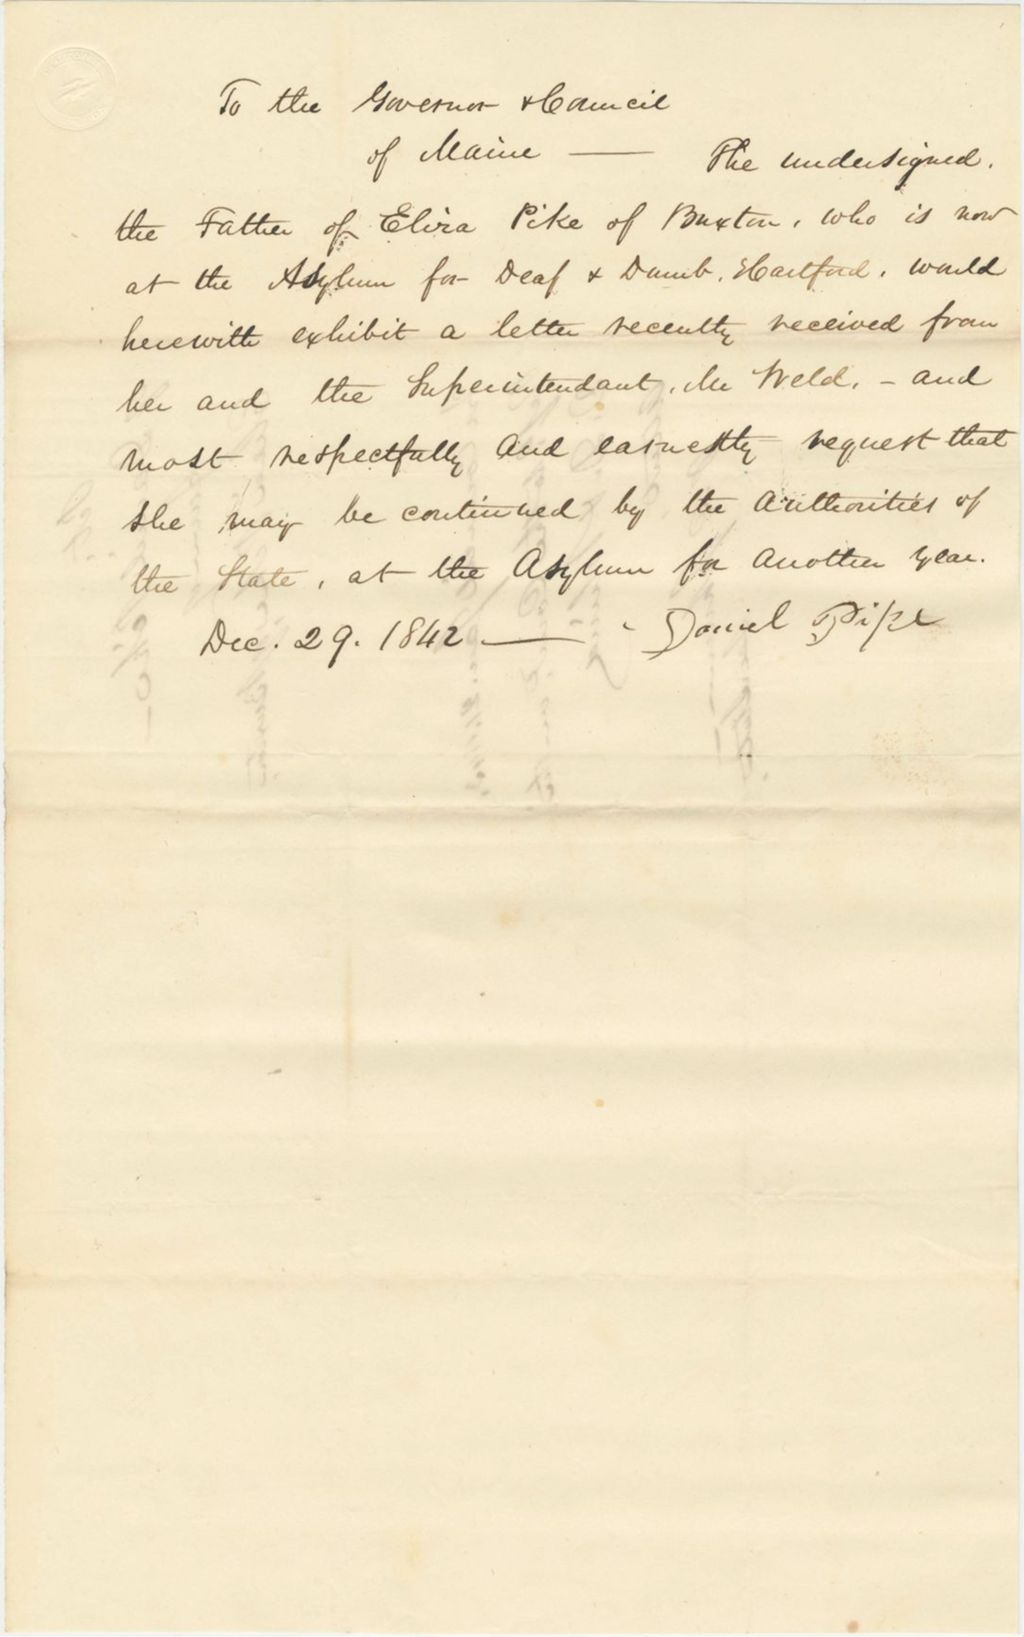 To the Governor & Council
of Maine — The undersigned.
the Father of Elvira Pike of Buxton, who is now
at the Asylum for Deaf & Dumb, Hartford, would
herewith exhibit a letter recently received from
her and the Superintendant, Mr Weld, - and
most respectfully and earnestly request that
she may be continued by the authorities of
the State, at the Asylum for another year.
Dec. 29. 1842 — Daniel Pike